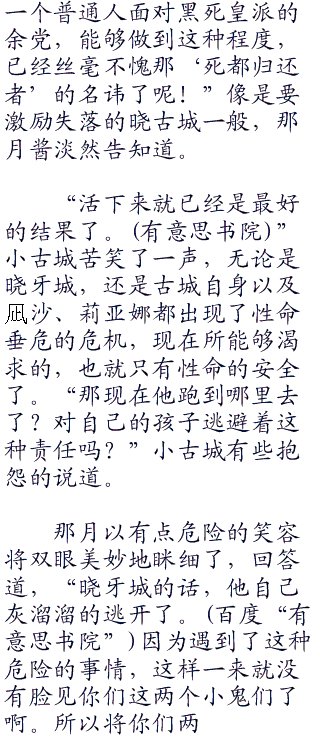 一个普通人面对黑死皇派的
余党，能够做到这种程度，
已经丝毫不愧那‘死都归还
者’的名讳了呢！”像是要
激励失落的晓古城一般，那
月酱淡然告知道。
“活下来就已经是最好
的结果了。(有意思书院)”
小古城苦笑了一声，无论是
晓牙城，还是古城自身以及
凪沙、莉亚娜都出现了性命
垂危的危机，现在所能够渴
求的，也就只有性命的安全
了。“那现在他跑到哪里去
了？对自己的孩子逃避着这
种责任吗？”小古城有些抱
怨的说道。
那月以有点危险的笑容
将双眼美妙地眯细了，回答
道，“晓牙城的话，他自己
灰溜溜的逃开了。(百度“有
意思书院”)因为遇到了这种
危险的事情，这样一来就没
有脸见你们这两个小鬼们了
啊。所以将你们两